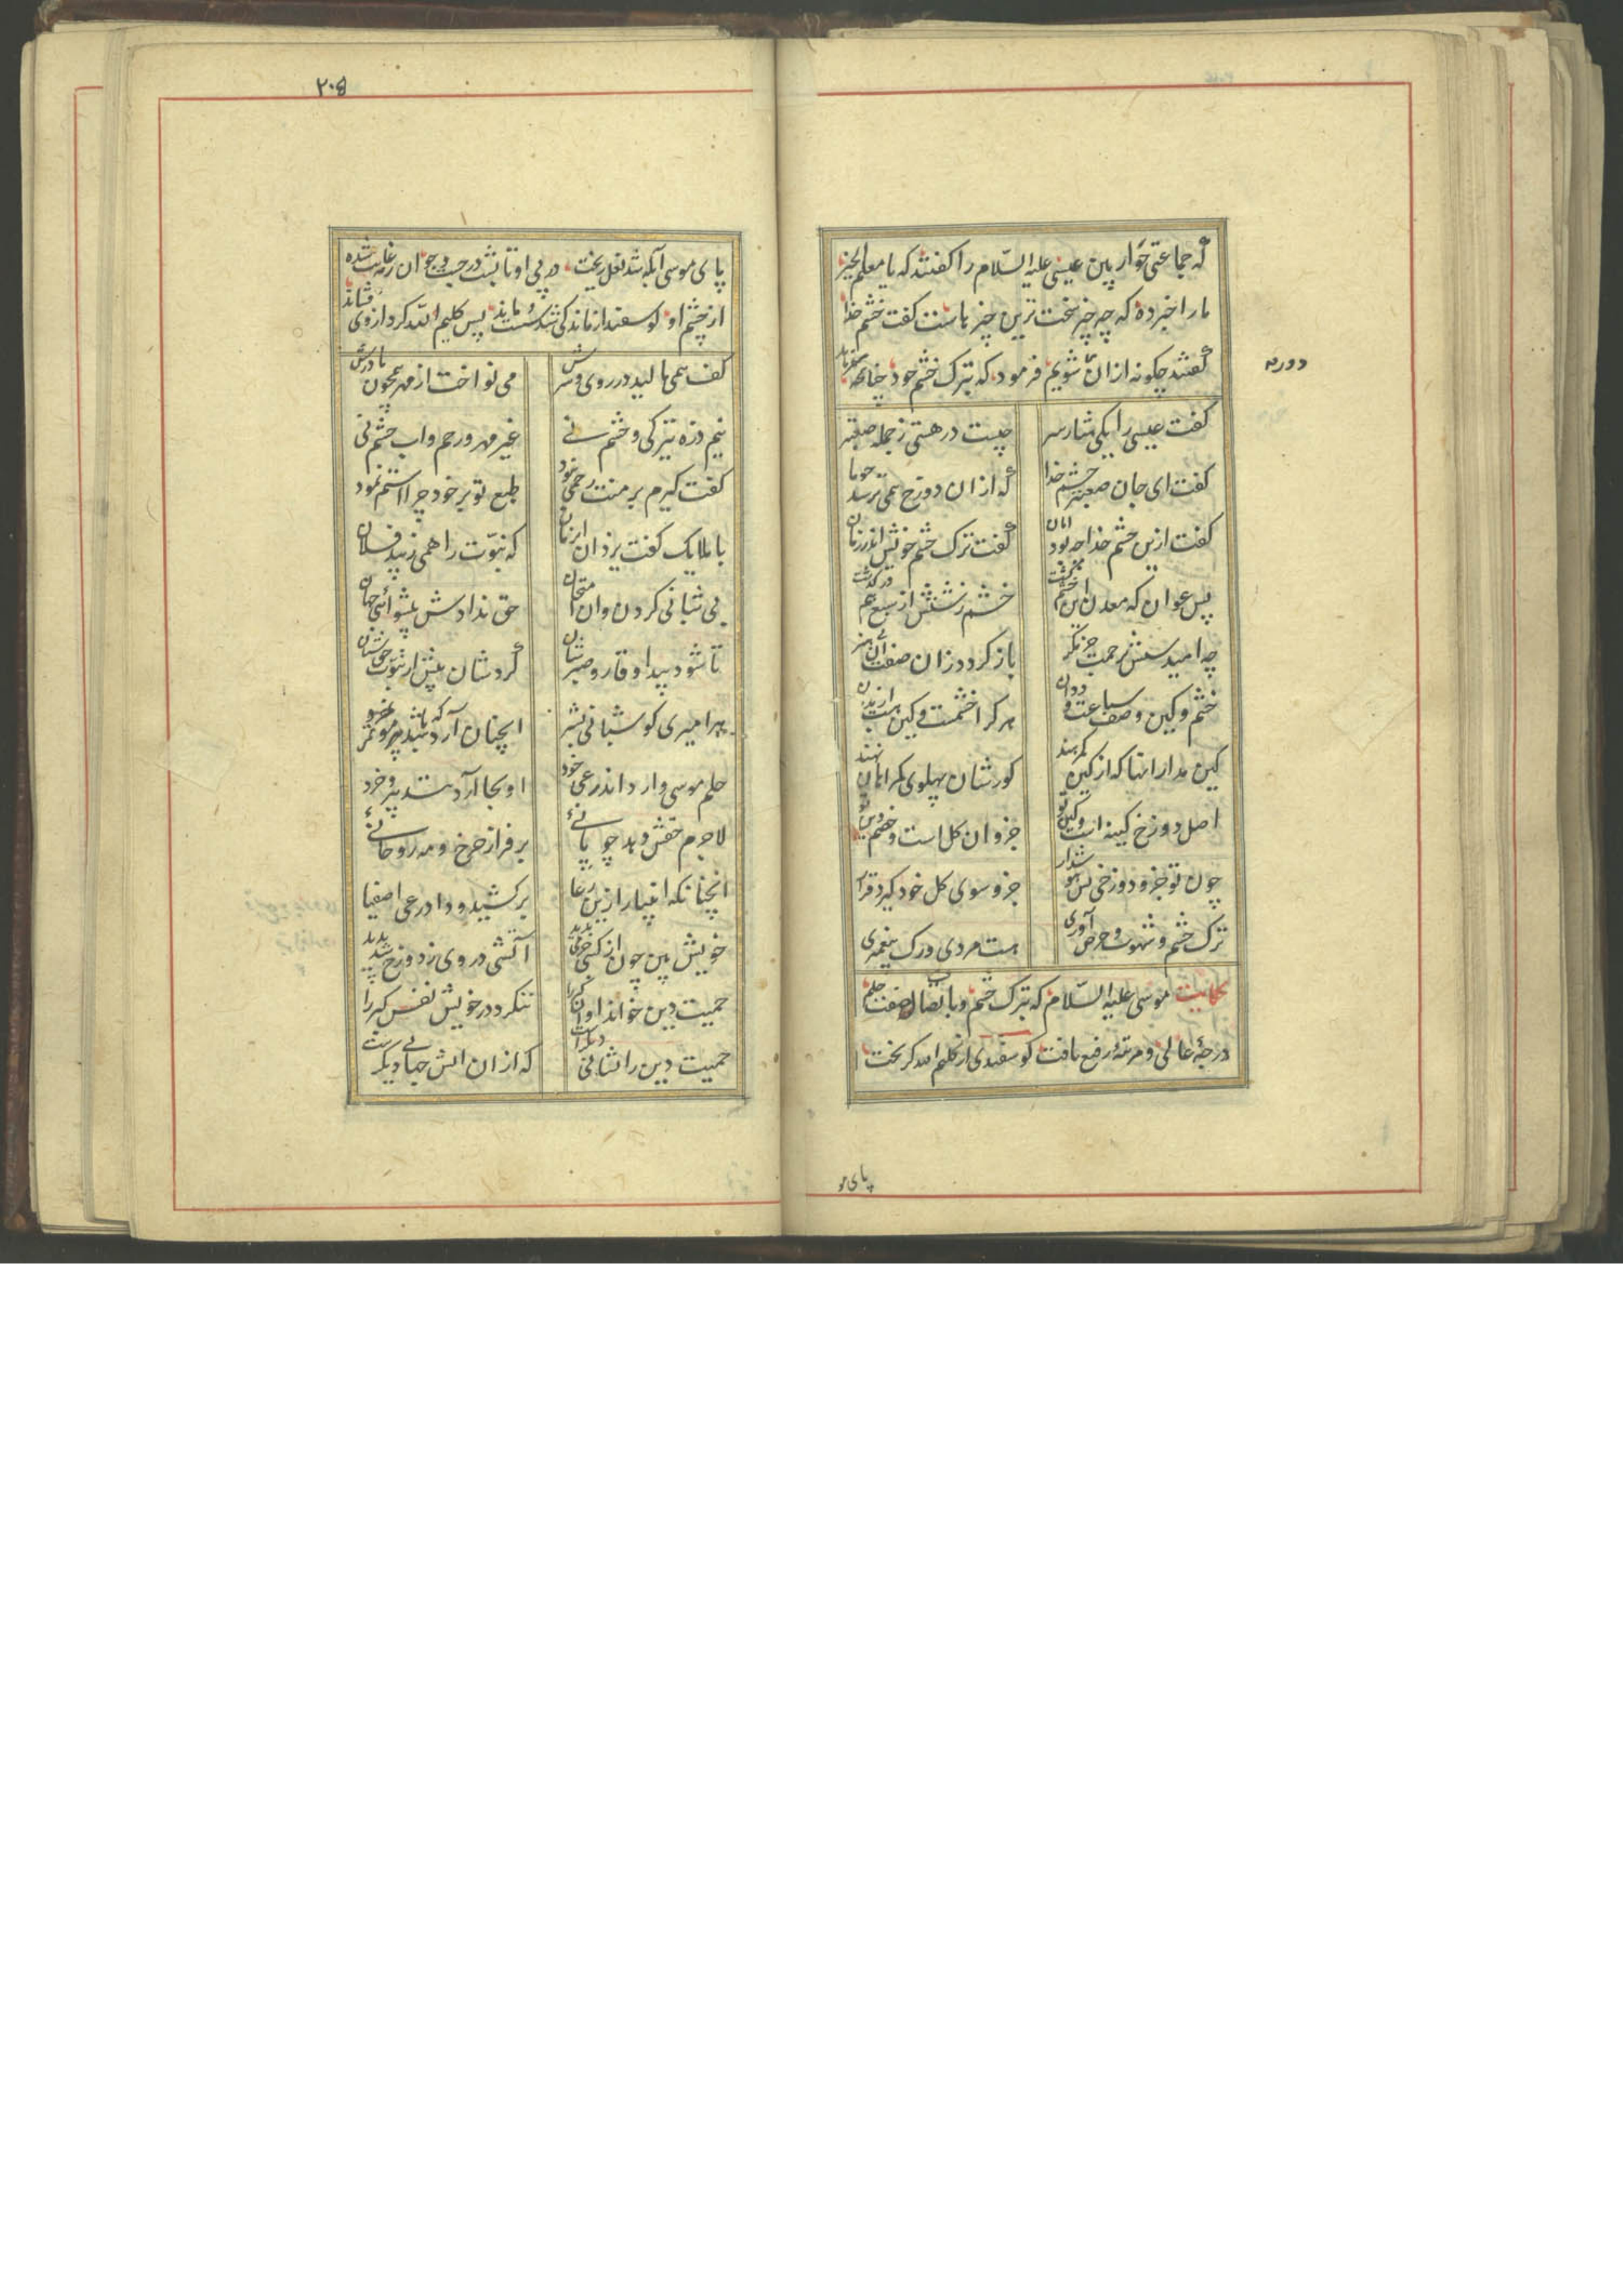 که جماعتی حواریین عیسی علیه السّلام را کفتند که یا معلم الخیر
ما را خبر ده که چه چیز سخت ترین چیزهاست کفت خشم خدا
کفتند چکونه ازان شویم فرمود که بترک خشم خود چنانکه میفرماید
دوریم
کفت عیسی را یکی هشیار سر
چیست در هستی ز جمله صعبتر
کفت ای جان صعبتر خشم خدا
که ازان دوزخ همی ترسد چو ما
کفت ازین خشم خدا چه بود امان
کفت ترک خشم خویش اندر زمان
پس عوان که معدن این خشم کشت
خشم زشتش از سبع هم در کذشت
چه امیدستش برحمت جز مکر
باز کردد زان صفت آن بی هنر
خشم و کین وصف سباعت و ددان
هر کرا خشمست و کین هست از بدان
کین مدار انها که از کین کمرهند
کورشان پهلوی کمراهان نهند
اصل دوزخ کینه است و کین تو
جزو ان کل است و خصم دین تو
چون تو جزو دوزخی پس هوش دار
جزو سوی کل خود کیرد قرار
ترک خشم و شهوت و حرص آوری
هست مردی و رک پیغمبری
حکایت موسی علیه السّلام که بترک خشم و باتصاف صفت حلم
درجهٔ عالی و مرتبهٔ رفیع یافت کوسفندی از کلیم الله کریخت
پای مو
۲۰۵
پای موسی آبله شد نعل ریخت در پی او تا بشب در جست و جو وان رمه غایب شده
از چشم او کوسفند از ماندکی شد سست و ماند پس کلیم الله کرد از وی فشاند
کف همی مالید در روی و سرش
می نواخت از مهر همچون مادرش
نیم ذره تیرکی و خشم نی
غیر مهر و رحم و اب چشم نی
کفت کیرم بر منت رحمی نبود
طبع تو بر خود چرا استم نمود
با ملایک کفت یزدان ان زمان
که نبوّت را همی زیبد فلان
بی شبانی کردن و ان امتحان
حق ندادش پیشوائی جهان
تا شود پیدا وقار و صبرشان
کردشان پیش از نبوّت حق شبان
هر امیری کو شبانی بشر
انچنان آرد که باشد مؤتمر
حلم موسی وار اندر رعی خود
او بجا آرد بتدبیر و خرد
لاجرم حقش دهد چوپانیٔ
بر فراز چرخ و مه روحانیٔ
انچنانکه انبیا را زین رعا
بر کشید و داد رعی اصفیا
خویش بین چون از کسی جرمی بدید
آتشی در وی ز دوزخ شد پدید
حمیت دین خواند او ان کبر را
ننکرد در خویش نفس کبر را
حمیت دین را نشانی دیکرست
که ازان اتش جهانی دیکرست